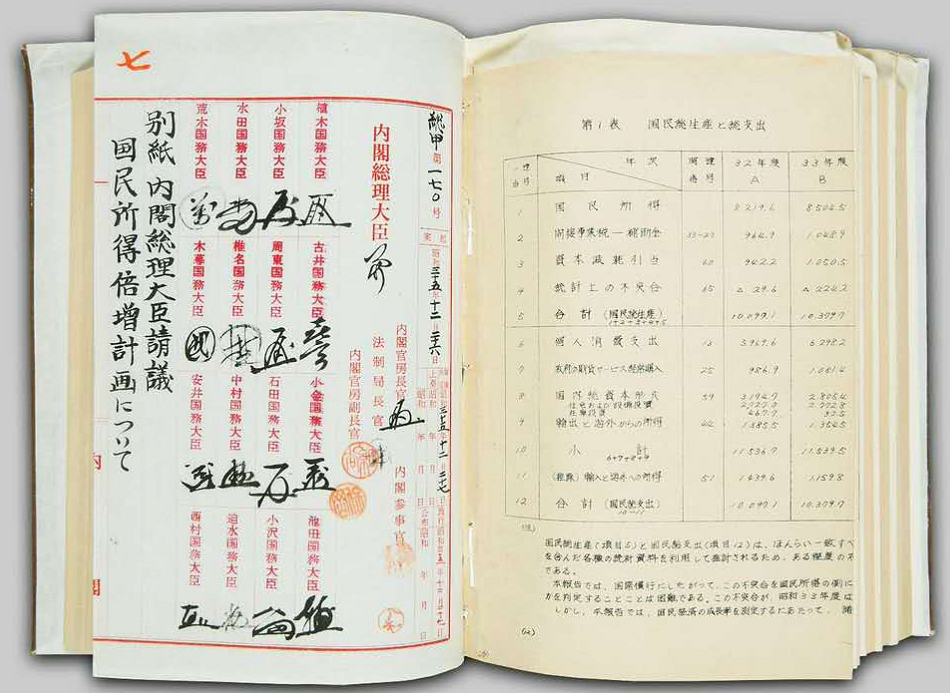 七
総甲第一七〇号
起案 昭和三五年十二月二六日
内閣総理大臣
内閣官房長官
法制局長官
内閣官房副長官
内閣参事官
植木国務大臣
小坂国務大臣
水田国務大臣
荒木国務大臣
古井国務大臣
周東国務大臣
椎名国務大臣
木暮国務大臣
小金国務大臣
石田国務大臣
中村国務大臣
安井国務大臣
池田国務大臣
小沢国務大臣
迫水国務大臣
西村国務大臣
別紙 内閣総理大臣請議
国民所得倍増計画について
内
閣
第1表 国民総生産と総支出
番号 項目 年次 関連番号 32年度A 33年度B
1 国民所得 8219.6 8504.5
2 間接事業税—補助金 964.9 1048.9
3 資本減耗引当 60 942.2 1050.5
4 統計上の不突合 65 △ 29.6 △ 224.2
5 合計(国民総生産) 10,097.1 10,379.7
1+2+3+4
6 個人消費支出 13 5969.6 6298.2
7 政府の財貨サービス経常購入 25 986.9 1061.4
8 国内総資本形成 59 3194.7 2805.4
住宅および設備投資 2727.0 2772.8
在庫投資 467.7 32.5
9 輸出と海外からの所得 1385.5 1354.5
10 小計 11,536.7 11,539.5
6+7+8+9
11 (控除)輸入と海外への所得 51 1439.6 1159.8
12 合計(国民総支出) 10,097.1 10,379.7
10-11
(注)
国民総生産(項目5)と国民総支出(項目12)は、ほんらい一致すべ
を含んだ各種の統計資料を利用して推計されるため、ある程度の不
である。
本報告では、国際慣行にしたがって、この不突合を国民所得の側に
かを判定することは困難である。この不突合が、昭和33年度は
しかし、本報告では、国民経済の成長率を測定するにあたって、